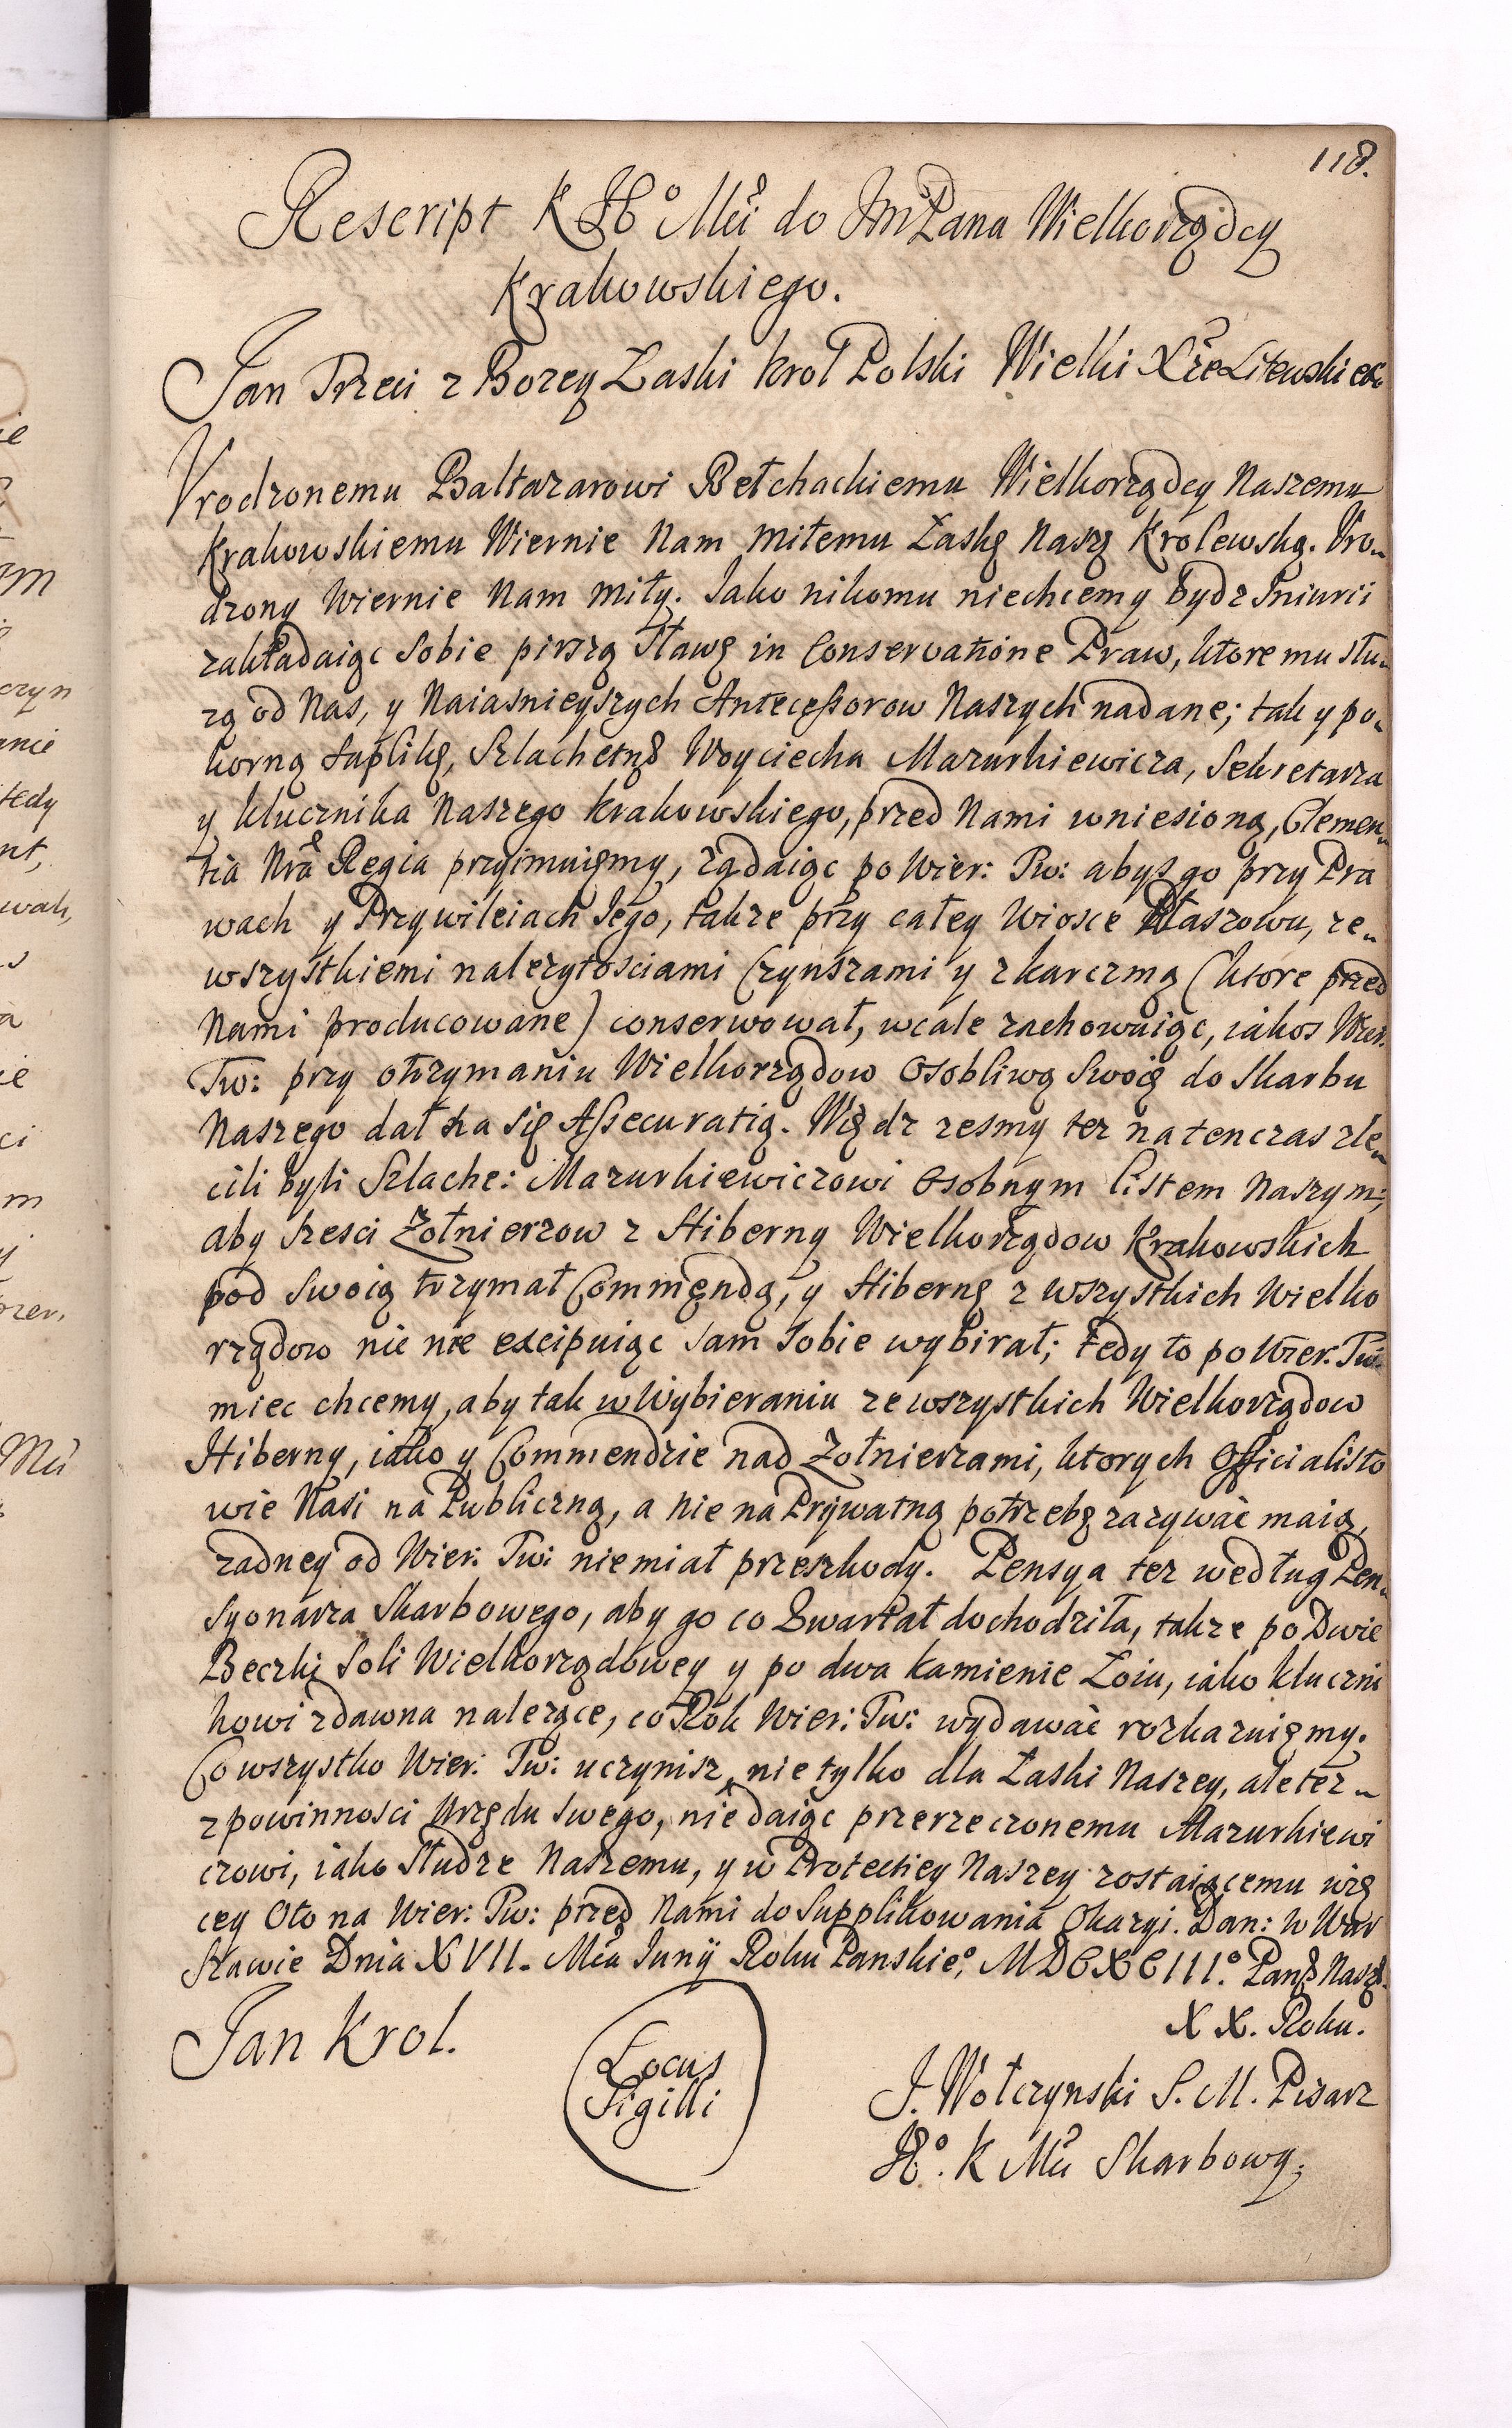 118.
Rescript K JEº Mći do JmPana Wielkorządcy
Krakowskiego.
Jan Trzeci z Bozey Łaski Krol Polski Wielki Xże Litewski etc
Vrodzonemu Baltazarowi Bełchackiemu Wielkorządcy Naszemu
Krakowskiemu Wiernie Nam miłemu Łaskę Naszę Krolewską. Vro-
dzony Wiernie Nam miły. Jako nikomu niechcemy bydz Iniurii
zakładaiąc Sobie pirszą sławę in Conservatione Praw, ktore mu słu-
zą od Nas, y Naiasnieyszych Antecessorow Naszych nadane; tak y po-
korną suplikę, Szlachetnº Woyciecha Mazurkiewicza, Sekretarza
y klucznika Naszego krakowskiego, przed Nami wniesioną, Clemen-
tia Nrā Regia przyimuięmy, ządaiąc po Wier: Tw: abys go przy Pra
wach y Przywileiach Jego, takze przy całey Wiosce Płaszowu, ze-
wszystkiemi nalezytosciami Czynszami y z karczmą (ktore przed
Nami producowane) conserwował, wcale zachowuiąc, iakos Wier.
Tw: przy otrzymaniu Wielkorządow Osobliwą Swoię do Skarbu
Naszego dał na się Assecuratią. Więdz zesmy tez natenczas zle-
cili byli Szlache: Mazurkiewiczowi Osobnym listem Naszym;
aby szesci Zołnierzow z Hiberny Wielkorządow Krakowskich
pod Swoią trzymał Commędą, y Hibernę z wszystkich Wielko
rządow nic nie excipuiąc sam Sobie wybirał; tedy to po Wier. Tw:
miec chcemy, aby tak w Wybieraniu ze wszystkich Wielkorządow
Hiberny, iako y Commendzie nad Zołnierzami, ktorych Officialisto
wie Nasi na Publiczną, a nie na Prywatną potrzebę zazywać maią,
zadney od Wier: Tw: niemiał przeszkody. Pensya tez według Pen-
syonarza Skarbowego, aby go co Qwartał dochodziła, takze po Dwie
Beczki Soli Wielkorządowey y po dwa kamienie Łoiu, iako kluczni
kowi zdawna nalezące, co Rok Wier: Tw: wydawać rozkazuięmy.
Co wszystko Wier: Tw: uczynisz, nie tylko dla Łaski Naszey, ale tez-
z powinnosci Urzędu Swego, nie daiąc przerzeczonemu Mazurkiewi
czowi, iako Słudze Naszemu, y w Protectiey Naszey zostaiącemu wię
cey Oto na Wier: Tw: przed Nami do Supplikowania Okazyi. Dan: w War
szawie Dnia XVII. Mca Junÿ Roku Panskieº MDCXCIIIº. Panº Naszº.
XX. Roku.
Jan Krol.
Locus
Sigilli
J. Wołczynski S. M. Pisarz
JEº. K Mći Skarbowy.